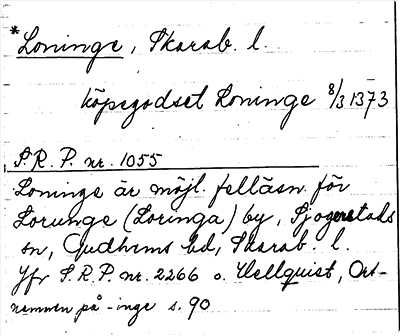 *Loninge, Skarab. l.
köpegodset Loninge 8/3 1373
S.R.P. nr. 1055
Loninge är möjl. felläsn. för
Lorunge (Loringa) by, Sjogerstads
sn, Gudhems hd, Skarab. l.
Jfr S.R.P. nr. 2266 o. Hellquist, Ort-
namnen på -inge s. 90